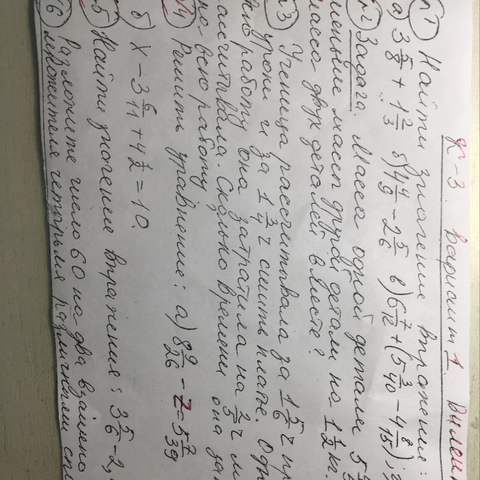 К-3. Вариант 1. Вилен
№1 Найти значение выражения:
а) 3 5/8 + 1 2/3 б) 4 4/9 - 2 5/6 в) 6 7/12 + (5 3/40 - 4 8/15);
№2 Задача. Масса одной детали 5
массы другой детали на 1 1/2 кг.
масса двух деталей вместе?
№3 Ученица рассчитывала за 1 5/6 ч пр
уроки и за 1 3/4 ч сшить платье. Одн
работу она затратила на 2/5 ч м
считывала. Сколько времени она за
всю работу
№4 Решить уравнение: а) 8 9/26 - z = 5 7/39
б) x - 3 6/11 + 4 1/2 = 10.
5 Найти значение выражения: 3 5/6 - 2,
6 Разложите число 60 на два взаимно
множителя четырьмя различными сп